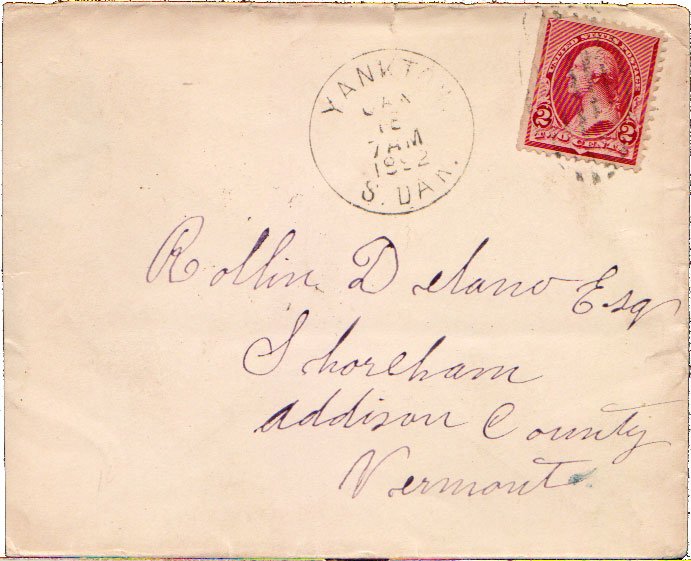 UNITED STATES POSTAGE
2 2
TWO CENTS
YANKTON
JAN
7 AM
S. DAK.
Rollin Delano Esq
Shoreham
Addison County
Vermont